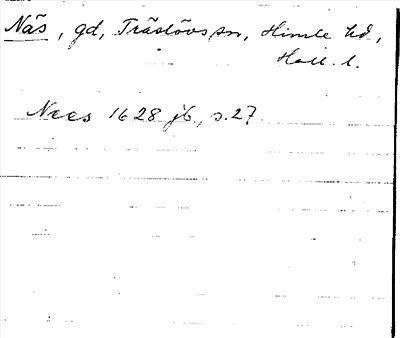 Näs, gd, Träslövs sn, Himle hd,
Hall. l.
Nees 1628 jb, s. 27